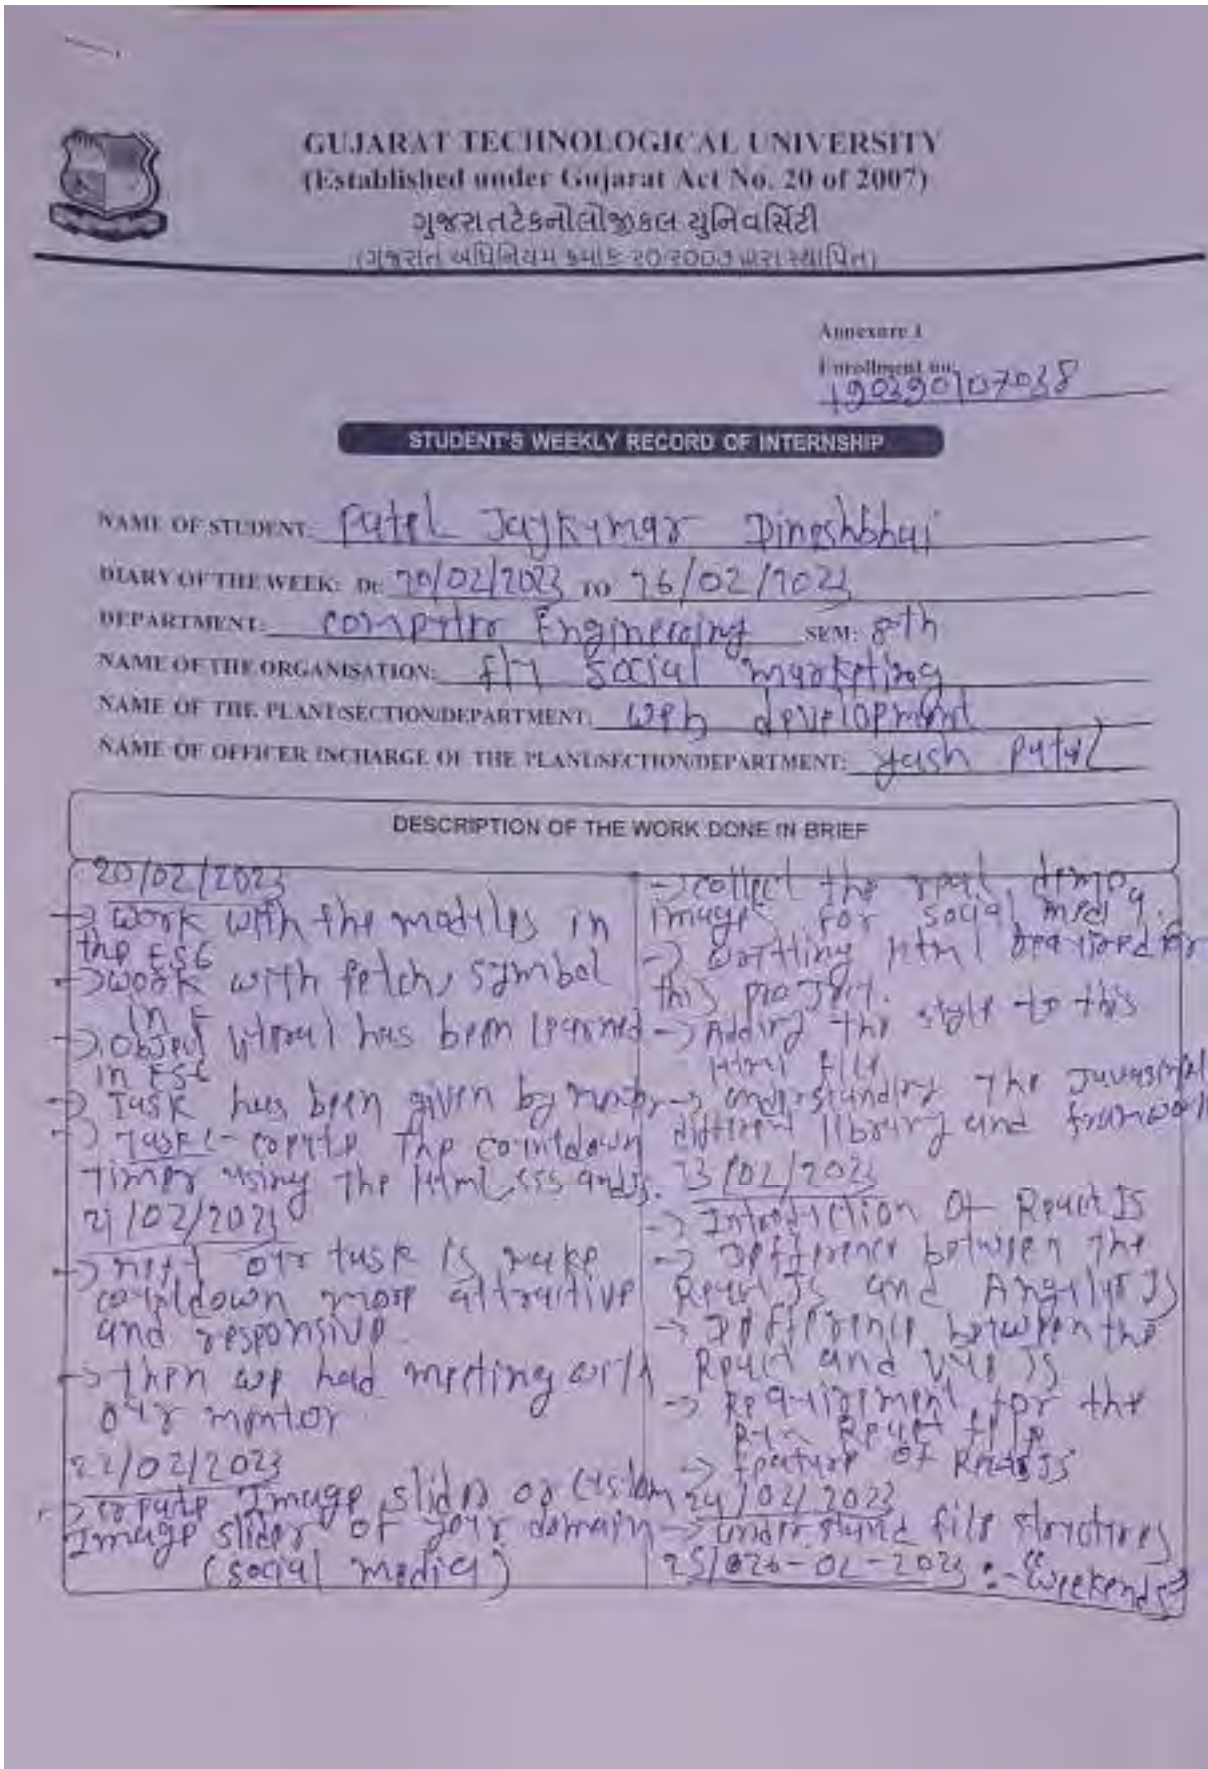 GUJARAT TECHNOLOGICAL UNIVERSITY
(Established under Gujarat Act No. 20 of 2007)
ગુજરાતટેકનોલોજીકલ યુનિવર્સિટી
(ગુજરાત અધિનિયમ ક્રમાંક: ૨૦/૨૦૦૭ દ્વારા સ્થાપિત)
Annexure 1
Enrollment no.
190390107038
STUDENT'S WEEKLY RECORD OF INTERNSHIP
NAME OF STUDENT: Patel Jaykumar Dineshbhai
DIARY OF THE WEEK: Dt: 20/02/2023 TO 26/02/2023
DEPARTMENT: Computer Engineering SEM: 8th
NAME OF THE ORGANISATION: social marketing
NAME OF THE PLANT/SECTION/DEPARTMENT: web development
NAME OF OFFICER INCHARGE OF THE PLANT/SECTION/DEPARTMENT: Yash Patel
DESCRIPTION OF THE WORK DONE IN BRIEF
20/02/2023
→ work with the modules in
the ES6
→ work with fetch, symbol
in
→ object literal has been learned
in ES6
→ Task has been given by mentor
→ Task:- create the countdown
timer using the Html css and js.
21/02/2023
→ next our task is make
countdown more attractive
and responsive.
→ then we had meeting with
our mentor
22/02/2023
→ create Image slider or custom
Image slider of your domain
(social media)
→ collect the demo
images for social media.
→ writting Html required for
this project.
→ Adding the style to this
Html file
→ understanding the Javascript
different library and framwork
23/02/2023
→ Introduction of React JS
→ Difference between the
React JS and Angular JS
→ Difference between the
React and Vue JS
→ Requirement for the
Run React file
→ feature of React JS
24/02/2023
→ understand file structures
25/026-02-2023 :- "Weekends"